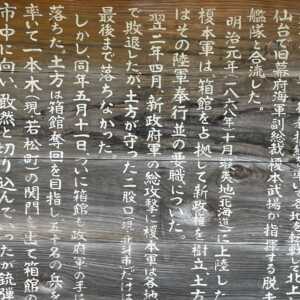 仙台で旧幕府海軍副総裁榎本武揚が指揮する脱走
艦隊と合流した。
明治元年(一八六八)十月、蝦夷地(北海道)に上陸した
榎本軍は、箱館を占拠して新政権を樹立、土方
はその陸軍奉行並の要職についた。
翌二年四月、新政府軍の総攻撃に榎本軍は各地
で敗退したが土方が守った二股口(現北斗市)だけは
最後まで落ちなかった
しかし同年五月十一日ついに箱館は政府軍の手に
落ちた。土方は箱館奪回を目指し五十名の兵を
率いて一本木(現若松町)の関門を出て箱館の
市中に向い、敢然と切り込んでいったが銃弾